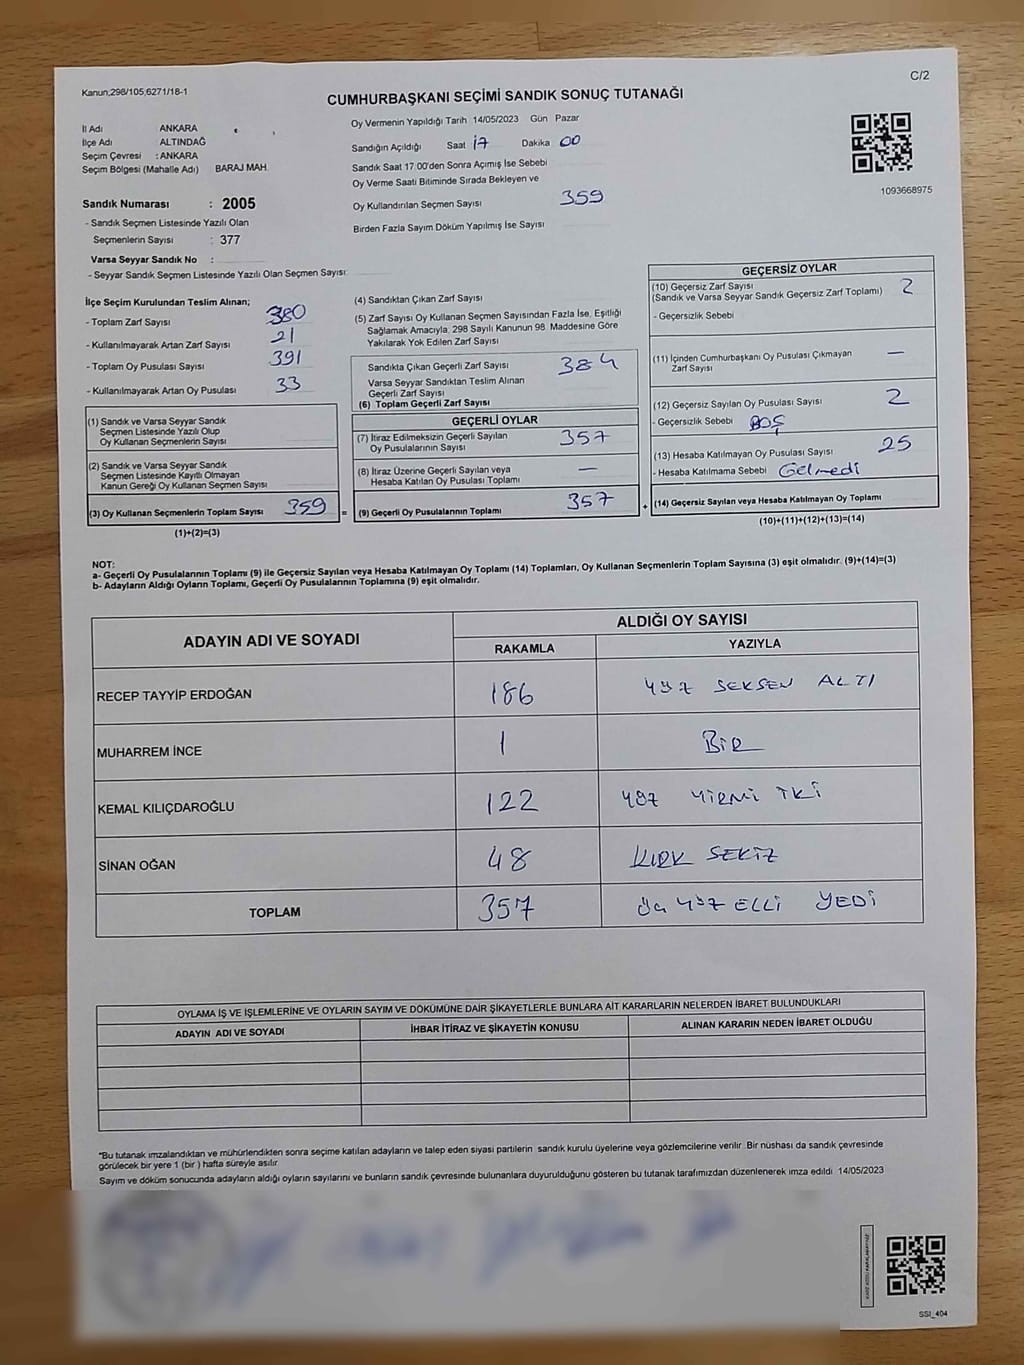 C/2
Kanun;298/105;6271/18-1
CUMHURBAŞKANI SEÇİMİ SANDIK SONUÇ TUTANAĞI
İl Adı ANKARA
İlçe Adı ALTINDAĞ
Seçim Çevresi : ANKARA
Seçim Bölgesi (Mahalle Adı) BARAJ MAH.
Sandık Numarası : 2005
- Sandık Seçmen Listesinde Yazılı Olan
Seçmenlerin Sayısı : 377
Varsa Seyyar Sandık No :
- Seyyar Sandık Seçmen Listesinde Yazılı Olan Seçmen Sayısı:
Oy Vermenin Yapıldığı Tarih 14/05/2023 Gün Pazar
Sandığın Açıldığı Saat 17 Dakika 00
Sandık Saat 17:00'den Sonra Açımış İse Sebebi
Oy Verme Saati Bitiminde Sırada Bekleyen ve
Oy Kullandırılan Seçmen Sayısı 359
Birden Fazla Sayım Döküm Yapılmış İse Sayısı
1093668975
İlçe Seçim Kurulundan Teslim Alınan;
- Toplam Zarf Sayısı 380
- Kullanılmayarak Artan Zarf Sayısı 21
- Toplam Oy Pusulası Sayısı 391
- Kullanılmayarak Artan Oy Pusulası 33
(1) Sandık ve Varsa Seyyar Sandık
Seçmen Listesinde Yazılı Olup
Oy Kullanan Seçmenlerin Sayısı
(2) Sandık ve Varsa Seyyar Sandık
Seçmen Listesinde Kayıtlı Olmayan
Kanun Gereği Oy Kullanan Seçmen Sayısı
(3) Oy Kullanan Seçmenlerin Toplam Sayısı 359 =
(1)+(2)=(3)
(4) Sandıktan Çıkan Zarf Sayısı
(5) Zarf Sayısı Oy Kullanan Seçmen Sayısından Fazla İse, Eşitliği
Sağlamak Amacıyla, 298 Sayılı Kanunun 98. Maddesine Göre
Yakılarak Yok Edilen Zarf Sayısı
Sandıkta Çıkan Geçerli Zarf Sayısı 384
Varsa Seyyar Sandıktan Teslim Alınan
Geçerli Zarf Sayısı
(6) Toplam Geçerli Zarf Sayısı
GEÇERLİ OYLAR
(7) İtiraz Edilmeksizin Geçerli Sayılan
Oy Pusulalarının Sayısı 357
(8) İtiraz Üzerine Geçerli Sayılan veya
Hesaba Katılan Oy Pusulası Toplamı —
(9) Geçerli Oy Pusulalarının Toplamı 357 +
GEÇERSİZ OYLAR
(10) Geçersiz Zarf Sayısı
(Sandık ve Varsa Seyyar Sandık Geçersiz Zarf Toplamı) 2
- Geçersizlik Sebebi
(11) İçinden Cumhurbaşkanı Oy Pusulası Çıkmayan
Zarf Sayısı —
(12) Geçersiz Sayılan Oy Pusulası Sayısı 2
- Geçersizlik Sebebi BOŞ
(13) Hesaba Katılmayan Oy Pusulası Sayısı 25
- Hesaba Katılmama Sebebi Gelmedi
(14) Geçersiz Sayılan veya Hesaba Katılmayan Oy Toplamı
(10)+(11)+(12)+(13)=(14)
NOT:
a- Geçerli Oy Pusulalarının Toplamı (9) ile Geçersiz Sayılan veya Hesaba Katılmayan Oy Toplamı (14) Toplamları, Oy Kullanan Seçmenlerin Toplam Sayısına (3) eşit olmalıdır. (9)+(14)=(3)
b- Adayların Aldığı Oyların Toplamı, Geçerli Oy Pusulalarının Toplamına (9) eşit olmalıdır.
ADAYIN ADI VE SOYADI ALDIĞI OY SAYISI
RAKAMLA YAZIYLA
RECEP TAYYİP ERDOĞAN 186 YÜZ SEKSEN ALTI
MUHARREM İNCE 1 BİR
KEMAL KILIÇDAROĞLU 122 YÜZ YİRMİ İKİ
SİNAN OĞAN 48 KIRK SEKİZ
TOPLAM 357 ÜÇ YÜZ ELLİ YEDİ
OYLAMA İŞ VE İŞLEMLERİNE VE OYLARIN SAYIM VE DÖKÜMÜNE DAİR ŞİKAYETLERLE BUNLARA AİT KARARLARIN NELERDEN İBARET BULUNDUKLARI
ADAYIN ADI VE SOYADI İHBAR İTİRAZ VE ŞİKAYETİN KONUSU ALINAN KARARIN NEDEN İBARET OLDUĞU
*Bu tutanak imzalandıktan ve mühürlendikten sonra seçime katılan adayların ve talep eden siyasi partilerin sandık kurulu üyelerine veya gözlemcilerine verilir. Bir nüshası da sandık çevresinde
görülecek bir yere 1 (bir ) hafta süreyle asılır.
Sayım ve döküm sonucunda adayların aldığı oyların sayılarını ve bunların sandık çevresinde bulunanlara duyurulduğunu gösteren bu tutanak tarafımızdan düzenlenerek imza edildi. 14/05/2023
SSI_404